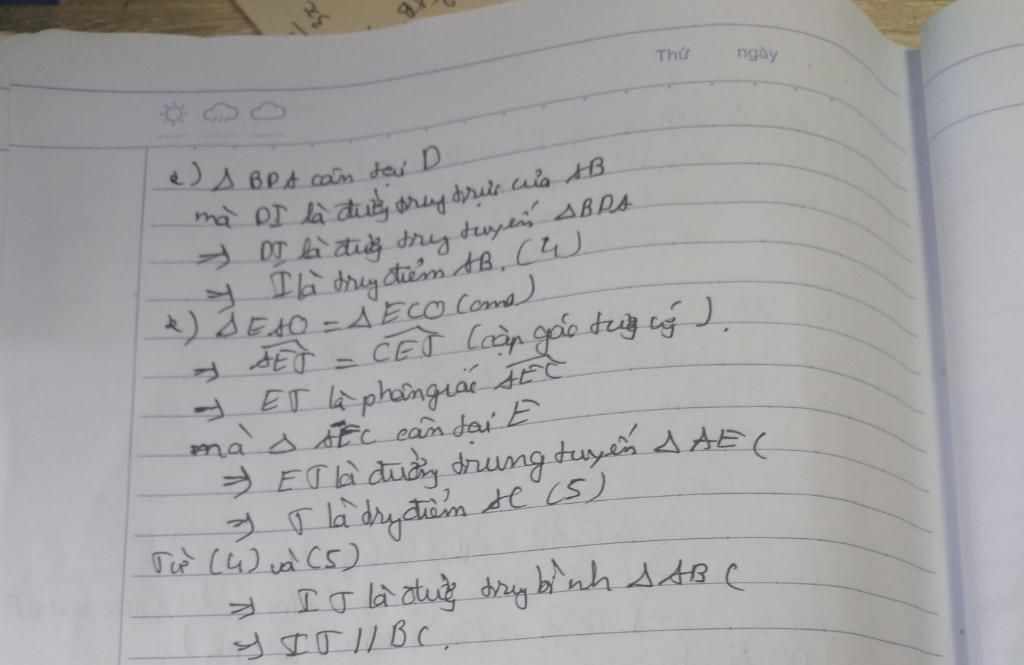 Thứ ngày
e) Δ BDA cân tại D
mà DI là đường trung trực của AB
⇒ DI là đường trung tuyến ΔBDA
⇒ I là trung điểm AB. (4)
k) ΔEAO = ΔECO (cma)
⇒ AEJ = CEJ (cặp góc tương ứng).
⇒ EJ là phân giác AEC
mà Δ AEC cân tại E
⇒ EJ là đường trung tuyến Δ AEC
⇒ J là trung điểm AC (5)
Từ (4) và (5)
⇒ IJ là đường trung bình Δ ABC
⇒ IJ // BC.